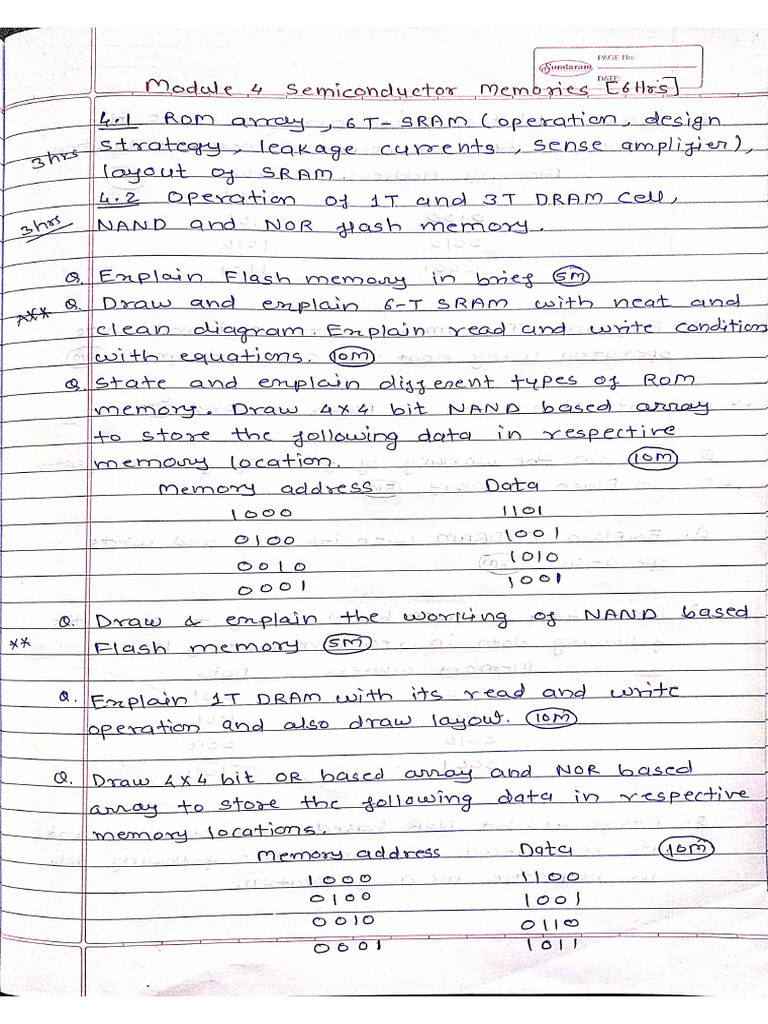 Sundaram
PAGE No:
DATE:
Module 4 Semiconductor Memories [6Hrs]
4.1 ROM array, 6T-SRAM (operation, design
3hrs strategy, leakage currents, sense amplifier),
layout of SRAM.
4.2 Operation of 1T and 3T DRAM cell,
3hrs NAND and NOR flash memory.
Q. Explain Flash memory in brief 5M
*** Q. Draw and explain 6-T SRAM with neat and
clean diagram. Explain read and write condition
with equations. 10M
Q State and explain different types of ROM
memory. Draw 4x4 bit NAND based array
to store the following data in respective
memory location. 10M
Memory address Data
1000 1101
0100 1001
0010 1010
0001 1001
Q. Draw & explain the working of NAND based
** Flash memory 5M
Q. Explain 1T DRAM with its read and write
operation and also draw layout. 10M
Q. Draw 4x4 bit OR based array and NOR based
array to store the following data in respective
memory locations.
Memory address Data 10M
1000 1100
0100 1001
0010 0110
0001 1011